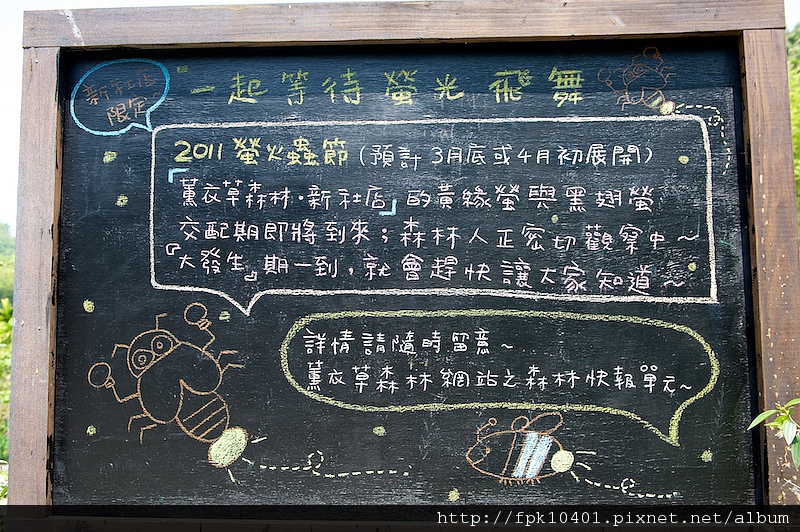 新社店
限定
一起等待螢光飛舞
2011 螢火蟲節 (預計 3月底或4月初展開)
「薰衣草森林·新社店」的黃緣螢與黑翅螢
交配期即將到來;森林人正密切觀察中~
『大發生』期一到,就會趕快讓大家知道~
詳情請隨時留意~
薰衣草森林網站之森林快報單元~
http://fpk10401.pixnet.net/album